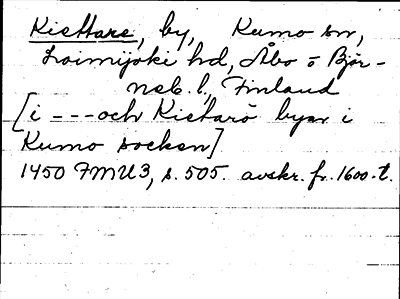 Kiettare, by, Kumo sn,
Loimijoki hd, Åbo o Björ-
neb. l., Finland
[i --- och Kietarö byar i
Kumo socken]
1450 FMU3, s. 505. avskr. fr. 1600-t.